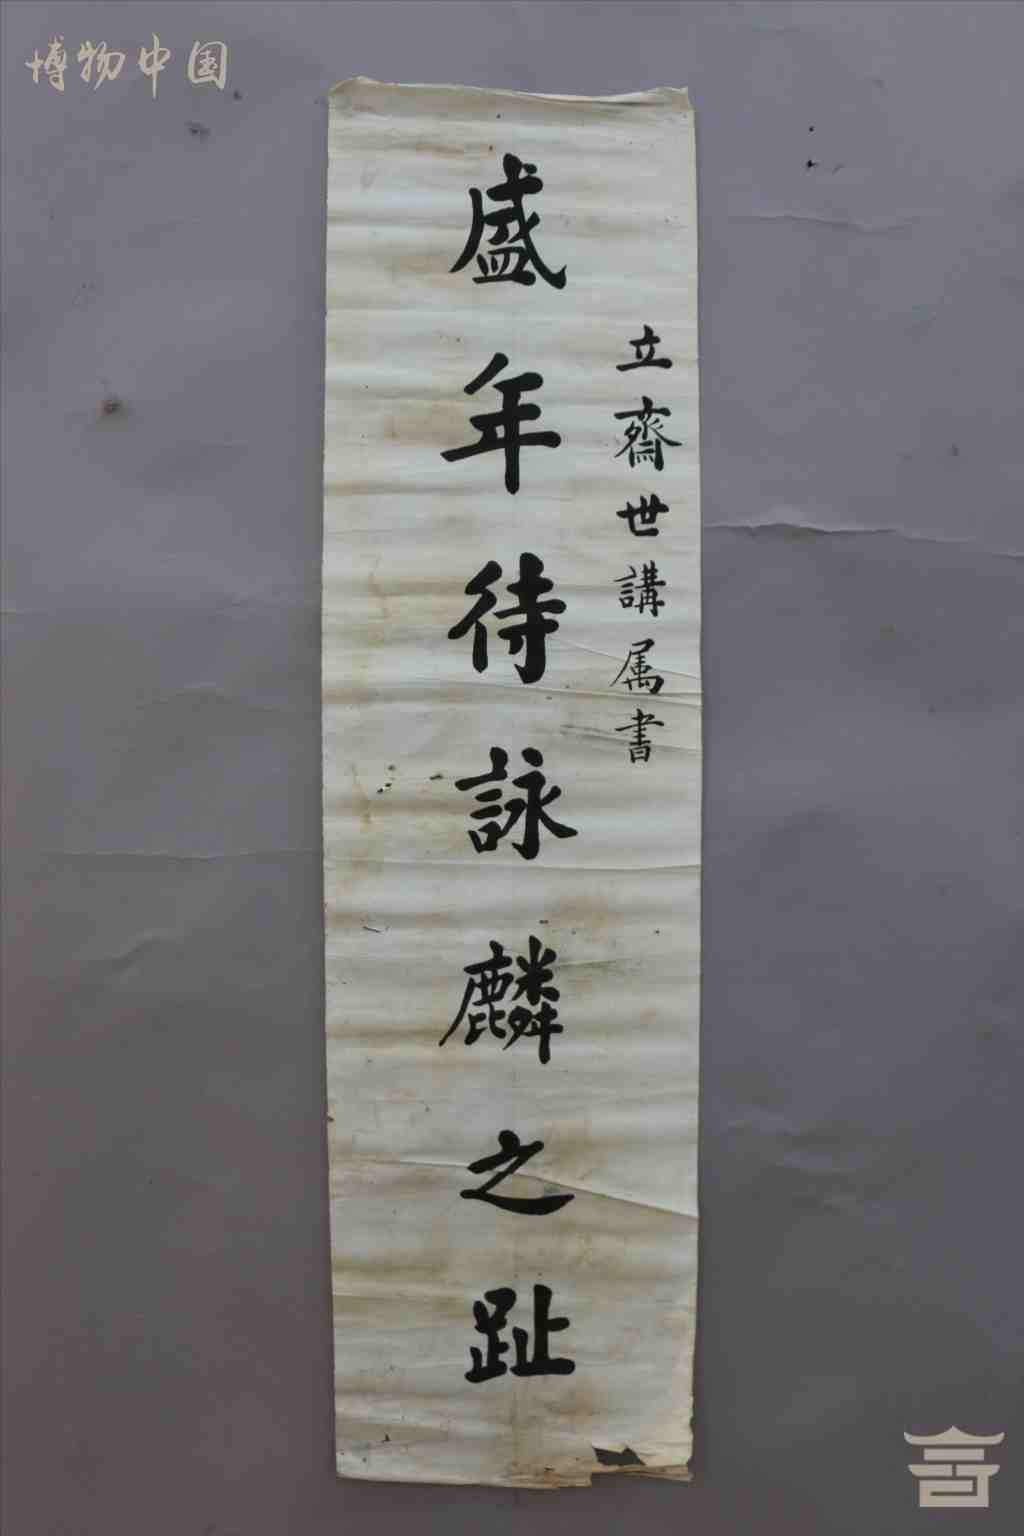 博物中国
立齋世講属書
盛年待詠麟之趾